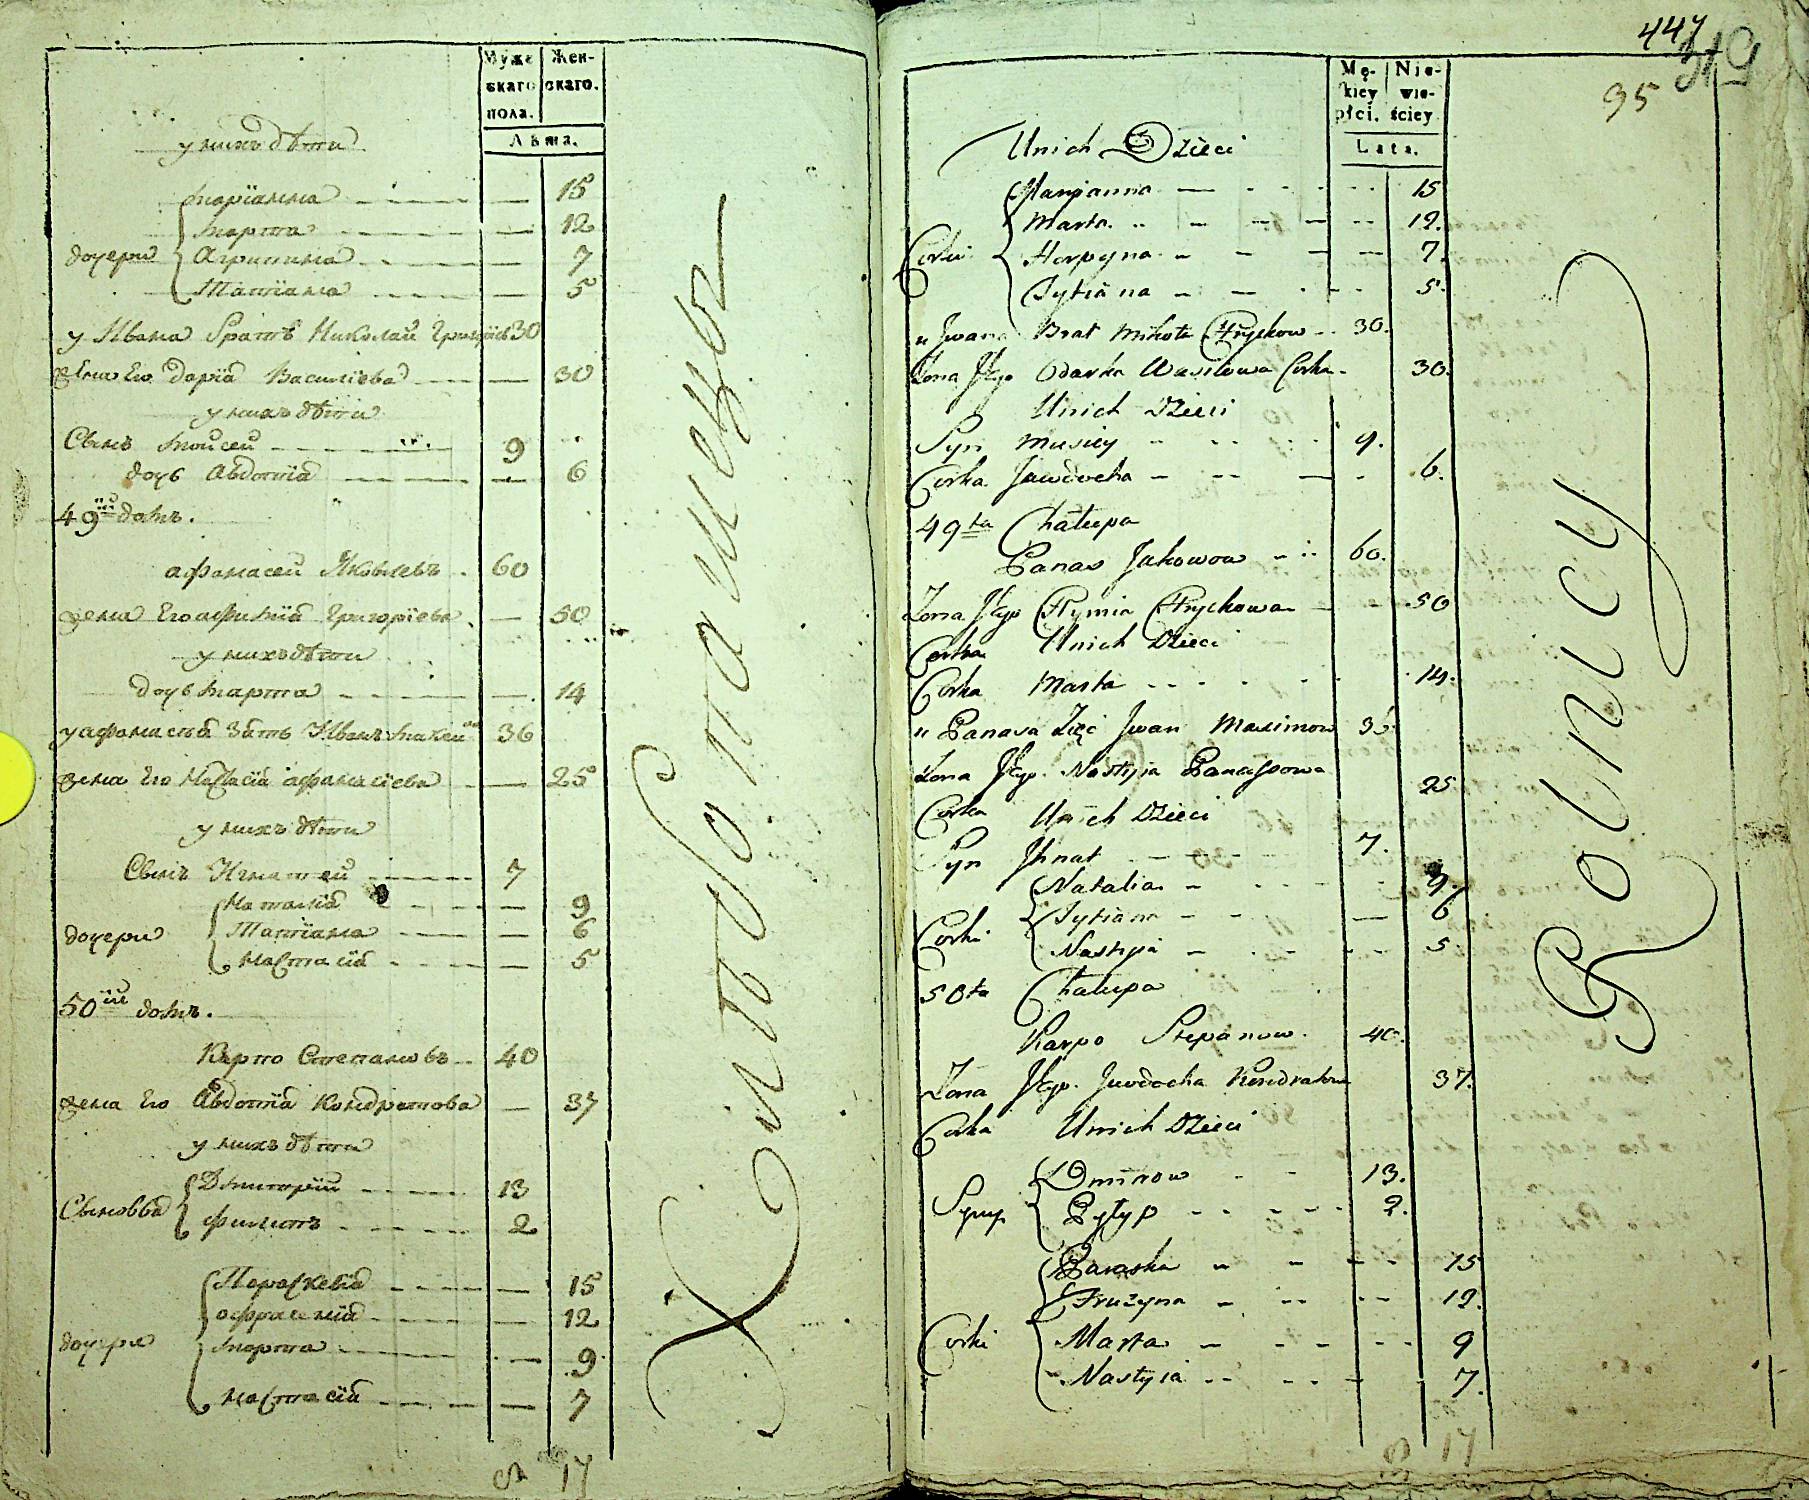 Муже
скаго
пола.
Жен-
скаго.
Лѣта.
у нихъ дѣти
Маріанна — 15
Марта — 12
дочери Агрипина — 7
Татіана — 5
у Ивана братъ Николай 30
жена Его Дарія Васильева — 30
у нихъ дѣти
Сынъ Моисей 9
дочь Авдотіа — 6
49ій домъ.
афанасей Яковлевъ 60
жена Его афимія Григоріева — 50
у нихъ дѣти
дочь Марта — 14
у афанасія Зять Иванъ 36
жена Его Настасіа афанасіева — 25
у нихъ дѣти
Сынъ Игнатей 7
Наталіа — 9
дочери Татіана — 6
Настасіа — 5
50ій домъ.
Карпо Степановъ 40
жена Его Авдотіа Кондратова — 37
у нихъ дѣти
Дмитрій 13
Сыновья
филипъ 2
Параскевіа — 15
офрасеніа — 12
дочери Марта — 9
Настасіа — 7
17
Хлѣбопашецъ
447
95
Mę-
kiey
płci.
Nie-
wie-
ściey
Lata.
Unich Dzieci
Maryanna — 15
Marta — 12.
Corki Horpyna — 7.
Tytiana — 5.
u Jwana Brat Mikoła Hryckow 30.
Zona Jego Odarka Wasilowa Corka 30.
Unich Dzieci
Syn Musiey 9.
Corka Jawdocha — 6.
49ta Chałupa
Panas Jakowow 60.
Zona Jego Hryckowa — 50
Corka Unich Dzieci
Corka Marta 14.
u Panasa Zięć Jwan Maximow 36
Zona Jego Nastyia Panassowa 25
Corka Unich Dzieci
Syn Jhnat 7.
Natalia 9.
Corki Tytiana — 6
Nastyia 5
50ta Chałupa
Karpo Stepanow 40.
Zona Jego Jwdocha Kondratowa 37.
Corka Unich Dzieci
13.
Syny Pyłyp 2.
Paraska 15
Fruzyna 12.
Corki Marta 9
Nastyia 7.
17
Rolnicy